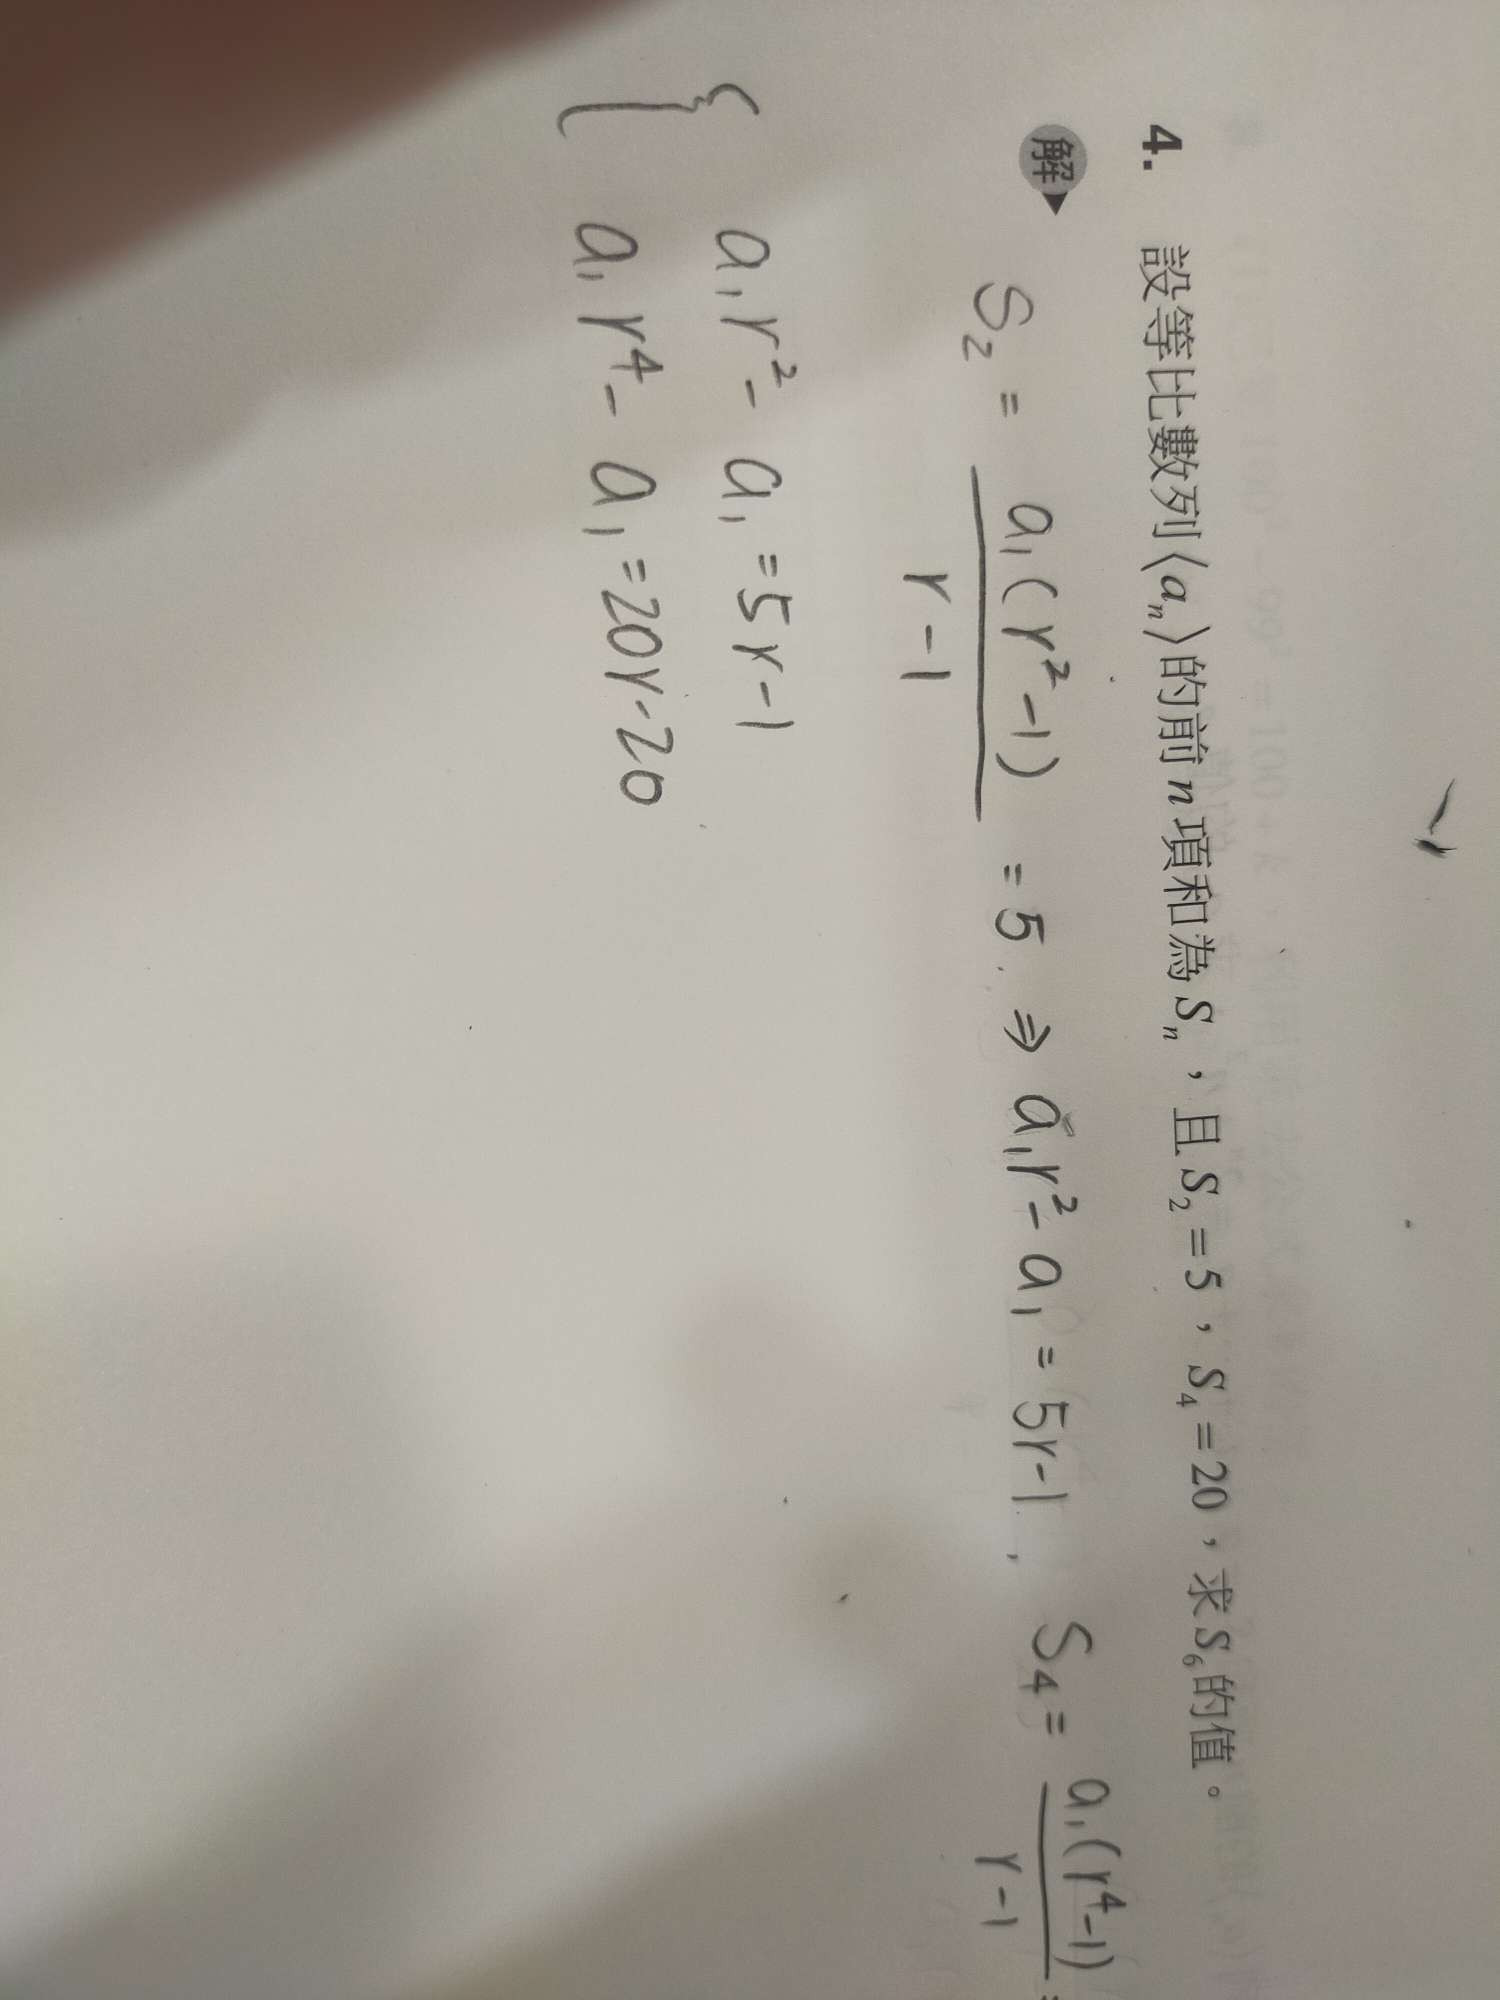 4. 設等比數列⟨aₙ⟩的前 n 項和為 Sₙ，且 S₂=5，S₄=20，求 S₆ 的值。
解
S₂ = a₁(r²-1)/(r-1) = 5 ⇒ a₁r²-a₁=5r-1, S₄= a₁(r⁴-1)/(r-1) =
{ a₁r²-a₁=5r-1
a₁r⁴-a₁=20r-20